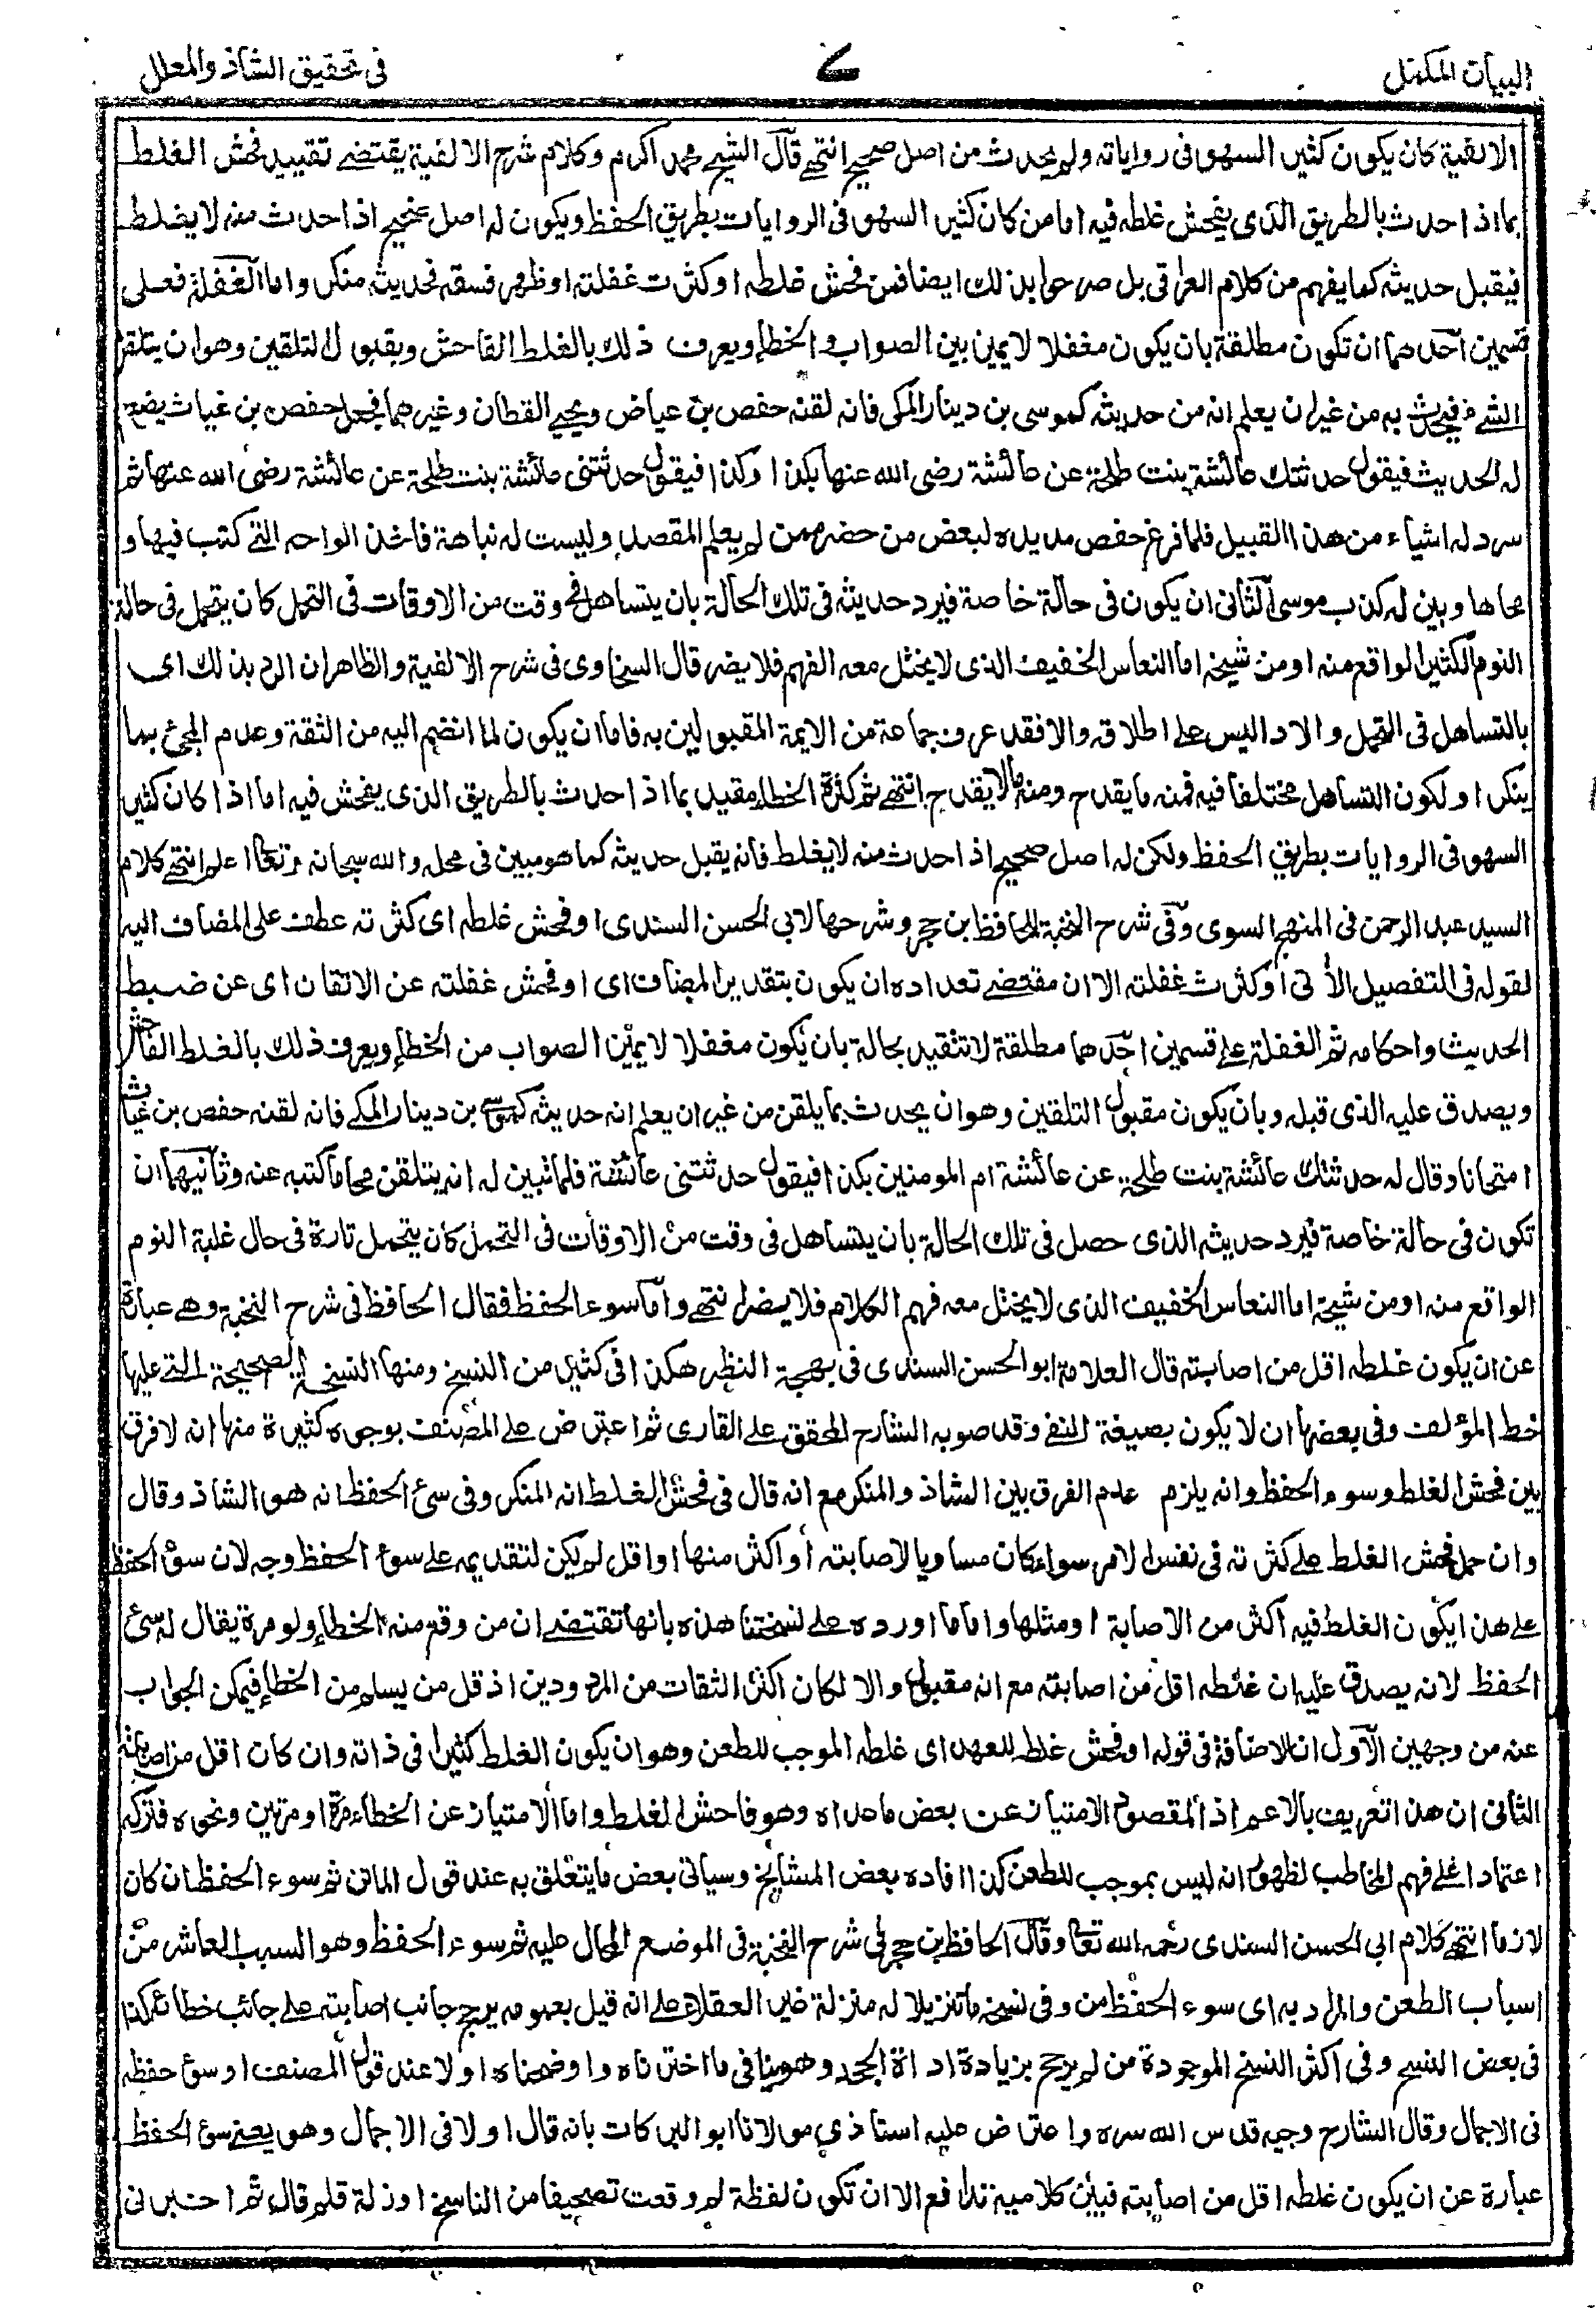 البيان المكمل
٧
فى تحقيق الشاذ والمعلل
الالفية كان يكون كثير السهو فى رواياته ولم يحدث من اصل صحيح انتهى قال الشيخ محمد اكرم وكلام شرح الالفية يقتضے تقييد فحش الغلط
بما اذا حدث بالطريق الذى يفحش غلطه فيه اما من كان كثير السهو فى الروايات بطريق الحفظ ويكون له اصل صحيح اذا حدث منه لا يغلط
فيقبل حديثه كما يفهم من كلام العراقى بل صرحوا بذلك ايضا فمن فحش غلطه او كثرت غفلته او ظهر فسقه فحديثه منكر واما الغفلة فعلى
قسمين احدهما ان تكون مطلقة بان يكون مغفلا لا يميز بين الصواب و الخطاء ويعرف ذلك بالغلط الفاحش وبقبول التلقين وهو ان يتلقن
الشے فيحدث به من غير ان يعلم انه من حديثه كموسى بن دينار المكى فانه لقنه حفص بن عياض ويحيے القطان وغيرهما فجعل حفص بن غياث يضع
له الحديث فيقول حدثتك عائشة بنت طلحة عن عائشة رضى الله عنها بكذا وكذا فيقول حدثتنى عائشة بنت طلحة عن عائشة رضى الله عنها ثم
سرد له اشياء من هذا القبيل فلما فرغ حفص مد يده لبعض من حضر ممن لم يعلم المقصد وليست له نباهة فاخذ الواحه التے كتب فيها و
محاها وبين له كذب موسى الثانى ان يكون فى حالة خاصة فيرد حديثه فى تلك الحالة بان يتساهل فى وقت من الاوقات فى التحمل كان يتحمل فى حالة
النوم الكثير الواقع منه او من شيخه اما النعاس الخفيف الذى لا يختل معه الفهم فلا يضر قال السخاوى فى شرح الالفية والظاهر ان الرد بذلك اى
بالتساهل فى التحمل و الاداء ليس على اطلاقه والا فقد عرف جماعة من الايمة المقبولين به فاما ان يكون لما انضم اليه من الثقة وعدم المجئ بما
ينكر او لكون التساهل مختلفا فيه فمنه ما يقدح ومنه ما لا يقدح انتهے ثم كثرة الخطاء مقيد بما اذا حدث بالطريق الذى يفحش فيه اما اذا كان كثير
السهو فى الروايات بطريق الحفظ ولكن له اصل صحيح اذا حدث منه لا يغلط فانه يقبل حديثه كما هو مبين فى محله والله سبحانه وتعالى اعلم انتهے كلام
السيد عبد الرحمن فى المنهج السوى وفى شرح النخبة للحافظ بن حجر وشرحها لابى الحسن السندى او فحش غلطه اى كثرته عطف على المضاف اليه
لقوله فى التفصيل الأتى او كثرت غفلته الا ان مقتضے تعداده ان يكون بتقدير المضاف اى او فحش غفلته عن الاتقان اى عن ضبط
الحديث واحكامه ثم الغفلة علے قسمين احدهما مطلقة لا تتقيد بحالة بان يكون مغفلا لا يميز الصواب من الخطاء ويعرف ذلك بالغلط الفاحش
ويصدق عليه الذى قبله وبان يكون مقبول التلقين وهو ان يحدث بما يلقن من غير ان يعلم انه حديثه كموسى بن دينار المكے فانه لقنه حفص بن غياث
امتحانا وقال له حدثتك عائشة بنت طلحة عن عائشة ام المومنين بكذا فيقول حدثتنى عائشة فلما تبين له انه يتلقن محا ما كتبه عنه وثانيهما ان
تكون فى حالة خاصة فيرد حديثه الذى حصل فى تلك الحالة بان يتساهل فى وقت من الاوقات فى التحمل كان يتحمل تارة فى حال غلبة النوم
الواقع منه او من شيخه اما النعاس الخفيف الذى لا يختل معه فهم الكلام فلا يضر انتهے واما سوء الحفظ فقال الحافظ فى شرح النخبة وهے عبارة
عن ان يكون غلطه اقل من اصابته قال العلامة ابو الحسن السندى فى بهجة النظر هكذا فى كثير من النسخ ومنها النسخة الصحيحة التے عليها
خط المؤلف وفى بعضها ان لا يكون بصيغة النفے وقد صوبه الشارح المحقق علے القارى ثم اعترض علے المصنف بوجوه كثيرة منها انه لا فرق
بين فحش الغلط وسوء الحفظ وانه يلزم عدم الفرق بين الشاذ والمنكر مع انه قال فى فحش الغلط انه المنكر وفى سئ الحفظ انه هو الشاذ وقال
وان حمل فحش الغلط علے كثرته فى نفس الامر سواء كان مساويا لاصابته أو اكثر منها او اقل لم يكن لتقديمه علے سوء الحفظ وجه لان سوء الحفظ
علے هذا يكون الغلط فيه اكثر من الاصابة او مثلها واما ما اورده علے نسختنا هذه بانها تقتضے ان من وقع منه الخطاء ولو مرة يقال له سئ
الحفظ لانه يصدق عليه ان غلطه اقل من اصابته مع انه مقبول والا لكان اكثر الثقات من المردودين اذ قل من يسلم من الخطاء فيمكن الجواب
عنه من وجهين الاول ان الاضافة فى قوله او فحش غلطه للعهد اى غلطه الموجب للطعن وهو ان يكون الغلط كثيرا فى ذاته وان كان اقل من اصابته
الثانى ان هذا تعريف بالاعم اذ المقصود الامتياز عن بعض ما عداه وهو فاحش الغلط واما الامتياز عن الخطاء مرة او مرتين ونحوه فتركه
اعتمادا علے فهم المخاطب لظهور انه ليس بموجب للطعن كذا افاده بعض المشايخ وسياتى بعض ما يتعلق به عند قول الماتن ثم سوء الحفظ ان كان
لازما انتهے كلام ابى الحسن السندى رحمه الله تعالى وقال الحافظ بن حجر فى شرح النخبة فى الموضع المحال عليه ثم سوء الحفظ وهو السبب العاشر من
اسباب الطعن والمراد به اى سوء الحفظ من وفى نسخة ما تنزيلا له منزلة غير العقلاء علے انه قيل بعمومه يرجح جانب اصابته علے جانب خطائه كذا
فى بعض النسخ وفى اكثر النسخ الموجودة من لم يرجح بزيادة اداة الجحد وهو ينافى ما اخترناه واوضحناه اولا عند قول المصنف او سوء حفظه
فى الاجمال وقال الشارح وجيه قدس الله سره واعتراض عليه استاذي مولانا ابو البركات بانه قال اولا فى الاجمال وهو يعنے سئ الحفظ
عبارة عن ان يكون غلطه اقل من اصابته فبين كلاميه تدافع الا ان تكون لفظة لم وقعت تصحيفا من الناسخ او زلة قلم قال ثم اخبرنى